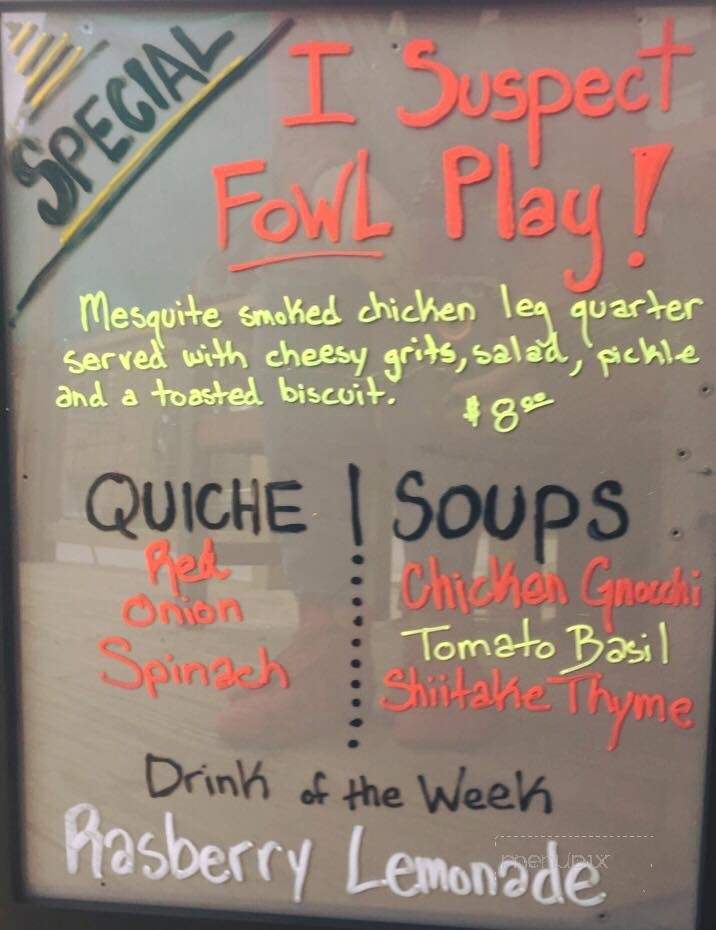 SPECIAL
I Suspect
FOWL Play!
Mesquite smoked chicken leg quarter
served with cheesy grits, salad, pickle
and a toasted biscuit. $8.00
QUICHE | SOUPS
Red Chicken Gnocchi
Onion Tomato Basil
Spinach Shiitake Thyme
Drink of the Week
Rasberry Lemonade
menupix